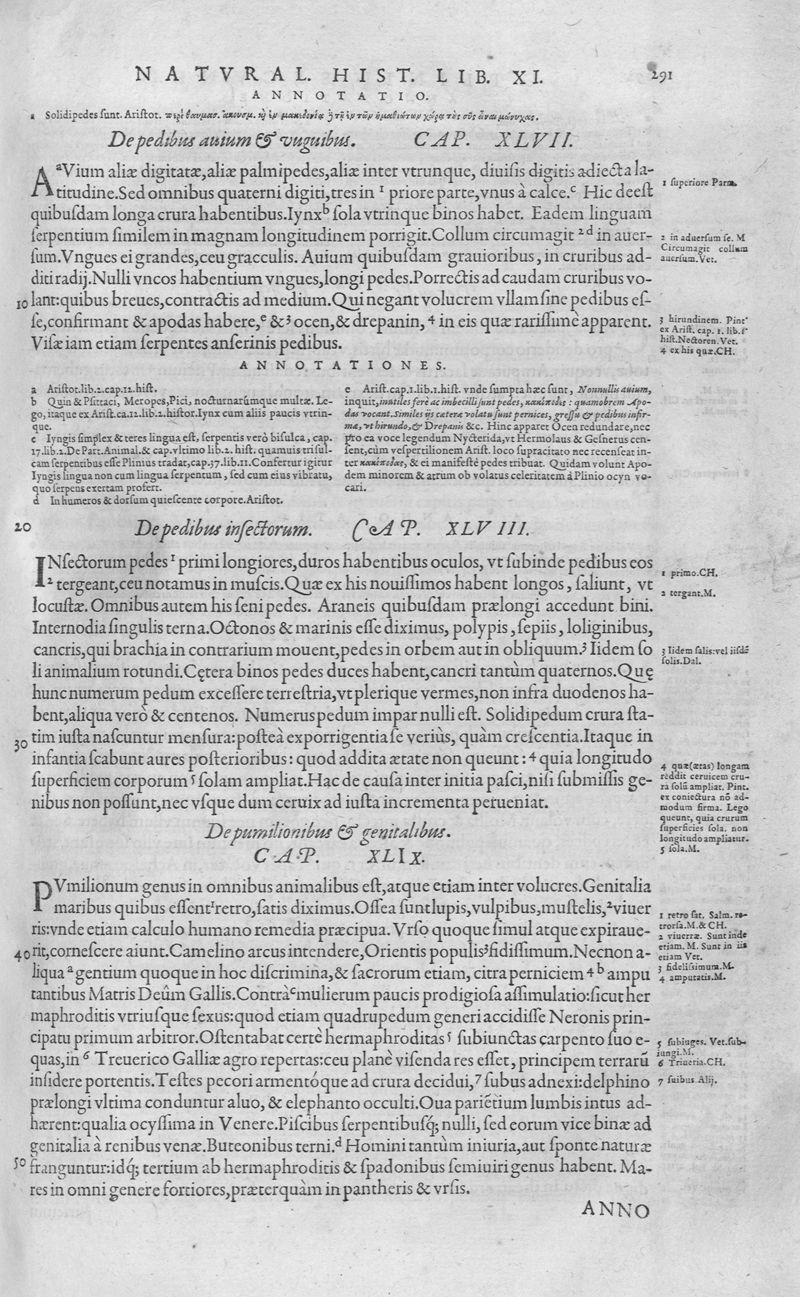 NATVRAL. HIST. LIB. XI.
291
ANNOTATIO.
a Solidipedes sunt. Aristot.
De pedibus auium & vuguibus. CAP. XLVII.
AᵃVium aliæ digitatæ,aliæ palmipedes,aliæ inter vtrunque, diuisis digitis adiecta la-
titudine.Sed omnibus quaterni digiti,tres in ¹ priore parte,vnus à calce.ᶜ Hic deest
quibusdam longa crura habentibus.Iynxᵇ sola vtrinque binos habet. Eadem linguam
serpentium similem in magnam longitudinem porrigit.Collum circumagit ²ᵈ in auer-
sum.Vngues ei grandes,ceu gracculis. Auium quibusdam grauioribus, in cruribus ad-
diti radij.Nulli vncos habentium vngues,longi pedes.Porrectis ad caudam cruribus vo-
10 lant:quibus breues,contractis ad medium.Qui negant volucrem vllam sine pedibus es-
se,confirmant & apodas habere,ᵉ &³ ocen,& drepanin, ⁴ in eis quæ rarissimè apparent.
Visæ iam etiam serpentes anserinis pedibus.
1 superiore Parm.
2 in aduersum se. M
Circumagit collum
auersum.Vet.
3 hirundinem. Pint'
ex Arist. cap. 1. lib. 1°
hist.Nectoren. Vet.
4 ex his quæ.CH.
ANNOTATIONES.
a Aristot.lib.2.cap.12.hist.
b Quin & Psittaci, Meropes,Pici, nocturnarúmque multæ. Le-
go, itaque ex Arist.ca.12.lib.2.histor.Iynx cum aliis paucis vtrin-
que.
c Iyngis simplex & teres lingua est, serpentis verò bisulca, cap.
17.lib.2.De Part.Animal.& cap.vltimo lib.2. hist. quamuis trisul-
cam serpentibus esse Plinius tradat,cap.37.lib.11.Confertur igitur
Iyngis lingua non cum lingua serpentum, sed cum eius vibratu,
quo serpens exertam profert.
d In humeros & dorsum quiescente corpore.Aristot.
e Arist.cap.1.lib.1.hist. vnde sumpta hæc sunt, Nonnullis auium,
inquit,inutiles ferè ac imbecilli sunt pedes, κακόποδες : quamobrem Apo-
das vocant.Similes ijs cæteræ volatu sunt pernices, gressu & pedibus infir-
mæ, vt hirundo, & Drepanis &c. Hinc apparet Ocen redundare,nec
pro ea voce legendum Nycterida,vt Hermolaus & Gesnerus cen-
sent,cùm vespertilionem Arist. loco supracitato nec recenseat in-
ter κακόποδας, & ei manifestè pedes tribuat. Quidam volunt Apo-
dem minorem & atrum ob volatus celeritatem à Plinio ocyn vo-
cari.
20 De pedibus insectorum. CAP. XLVIII.
INsectorum pedes¹ primi longiores,duros habentibus oculos, vt subinde pedibus eos
² tergeant,ceu notamus in muscis.Quæ ex his nouissimos habent longos, saliunt, vt
locustæ. Omnibus autem his seni pedes. Araneis quibusdam prælongi accedunt bini.
Internodia singulis terna.Octonos & marinis esse diximus, polypis, sepiis, loliginibus,
cancris,qui brachia in contrarium mouent,pedes in orbem aut in obliquum.³ Iidem so
li animalium rotundi.Cętera binos pedes duces habent,cancri tantùm quaternos.Quę
hunc numerum pedum excessere terrestria,vt plerique vermes,non infra duodenos ha-
bent,aliqua verò & centenos. Numerus pedum impar nulli est. Solidipedum crura sta-
30 tim iusta nascuntur mensura:posteà exporrigentia se veriùs, quàm crescentia.Itaque in
infantia scabunt aures posterioribus: quod addita ætate non queunt: ⁴ quia longitudo
superficiem corporum ⁵ solam ampliat.Hac de causa inter initia pasci,nisi submissis ge-
nibus non possunt,nec vsque dum ceruix ad iusta incrementa perueniat.
1 primo.CH.
2 tergant.M.
3 Iidem salis:vel iisdē
solis.Dal.
4 quæ(ætas) longam
reddit ceruicem cru-
ra solū ampliat. Pint.
ex coniectura nō ad-
modum firma. Lego
queunt, quia crurum
superficies sola. non
longitudo ampliatur.
5 sola.M.
De pumilionibus & genitalibus.
CAP. XLIX.
PVmilionum genus in omnibus animalibus est,atque etiam inter volucres.Genitalia
maribus quibus essent¹retro,satis diximus.Ossea sunt lupis,vulpibus,mustelis,²viuer
ris:vnde etiam calculo humano remedia præcipua. Vrso quoque simul atque expiraue-
40 rit,cornescere aiunt.Camelino arcus intendere,Orientis populis³fidissimum.Necnon a-
liqua ᵃ gentium quoque in hoc discrimina,& sacrorum etiam, citra perniciem ⁴ ᵇ ampu
tantibus Matris Deûm Gallis.Contràᶜmulierum paucis prodigiosa assimulatio:sicut her
maphroditis vtriusque sexus:quod etiam quadrupedum generi accidisse Neronis prin-
cipatu primum arbitror.Ostentabat certè hermaphroditas⁵ subiunctas carpento suo e-
quas,in ⁶ Treuerico Galliæ agro repertas:ceu planè visenda res esset, principem terrarū
insidere portentis.Testes pecori armentóque ad crura decidui,⁷ subus adnexi:delphino
prælongi vltima conduntur aluo, & elephanto occulti.Oua parientium lumbis intus ad-
hærent:qualia ocyssima in Venere.Piscibus serpentibusq́; nulli, sed eorum vice binæ ad
genitalia à renibus venæ.Buteonibus terni.ᵈ Homini tantùm iniuria,aut sponte naturæ
50 franguntur:idq́; tertium ab hermaphroditis & spadonibus semiuiri genus habent. Ma-
res in omni genere fortiores,præterquàm in pantheris & vrsis.
1 retro sat. Salm. re-
trorsa.M.& CH.
2 viuerræ. Sunt inde
etiam. M. Sunt in iis
etiam Vet.
3 fidelissimum.M.
4 amputatis.M.
5 subiuges. Vet.sub-
iungi.M.
6 Triueria.CH.
7 suibus Alij.
ANNO